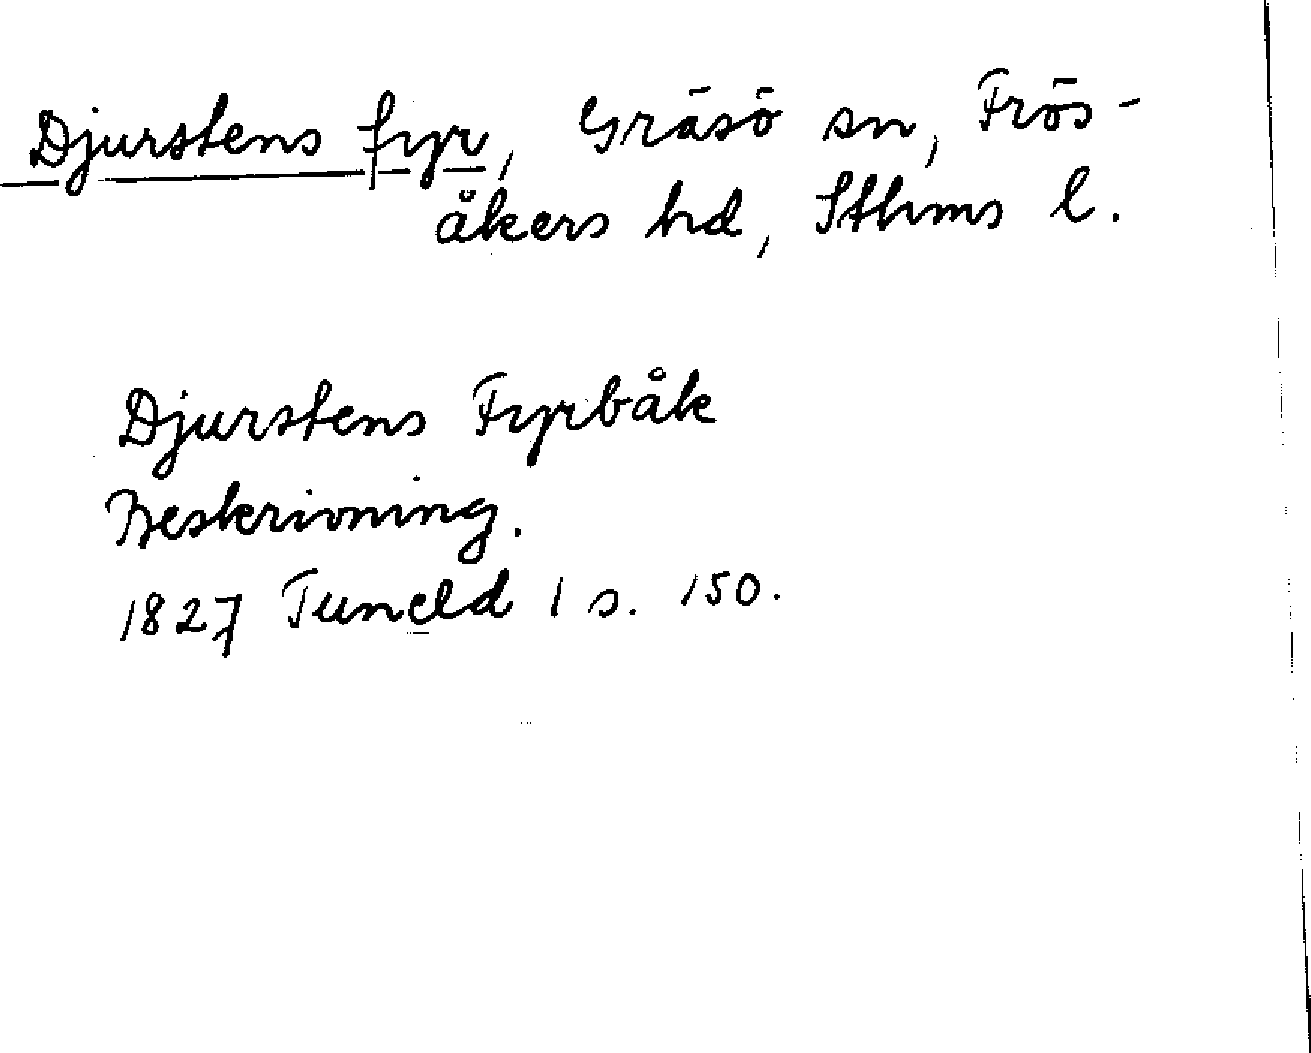 Djurstens fyr, Gräsö sn, Frös-
åkers hd, Sthms l.
Djurstens Fyrbåk
Beskrivning.
1827 Tuneld 1 s. 150.